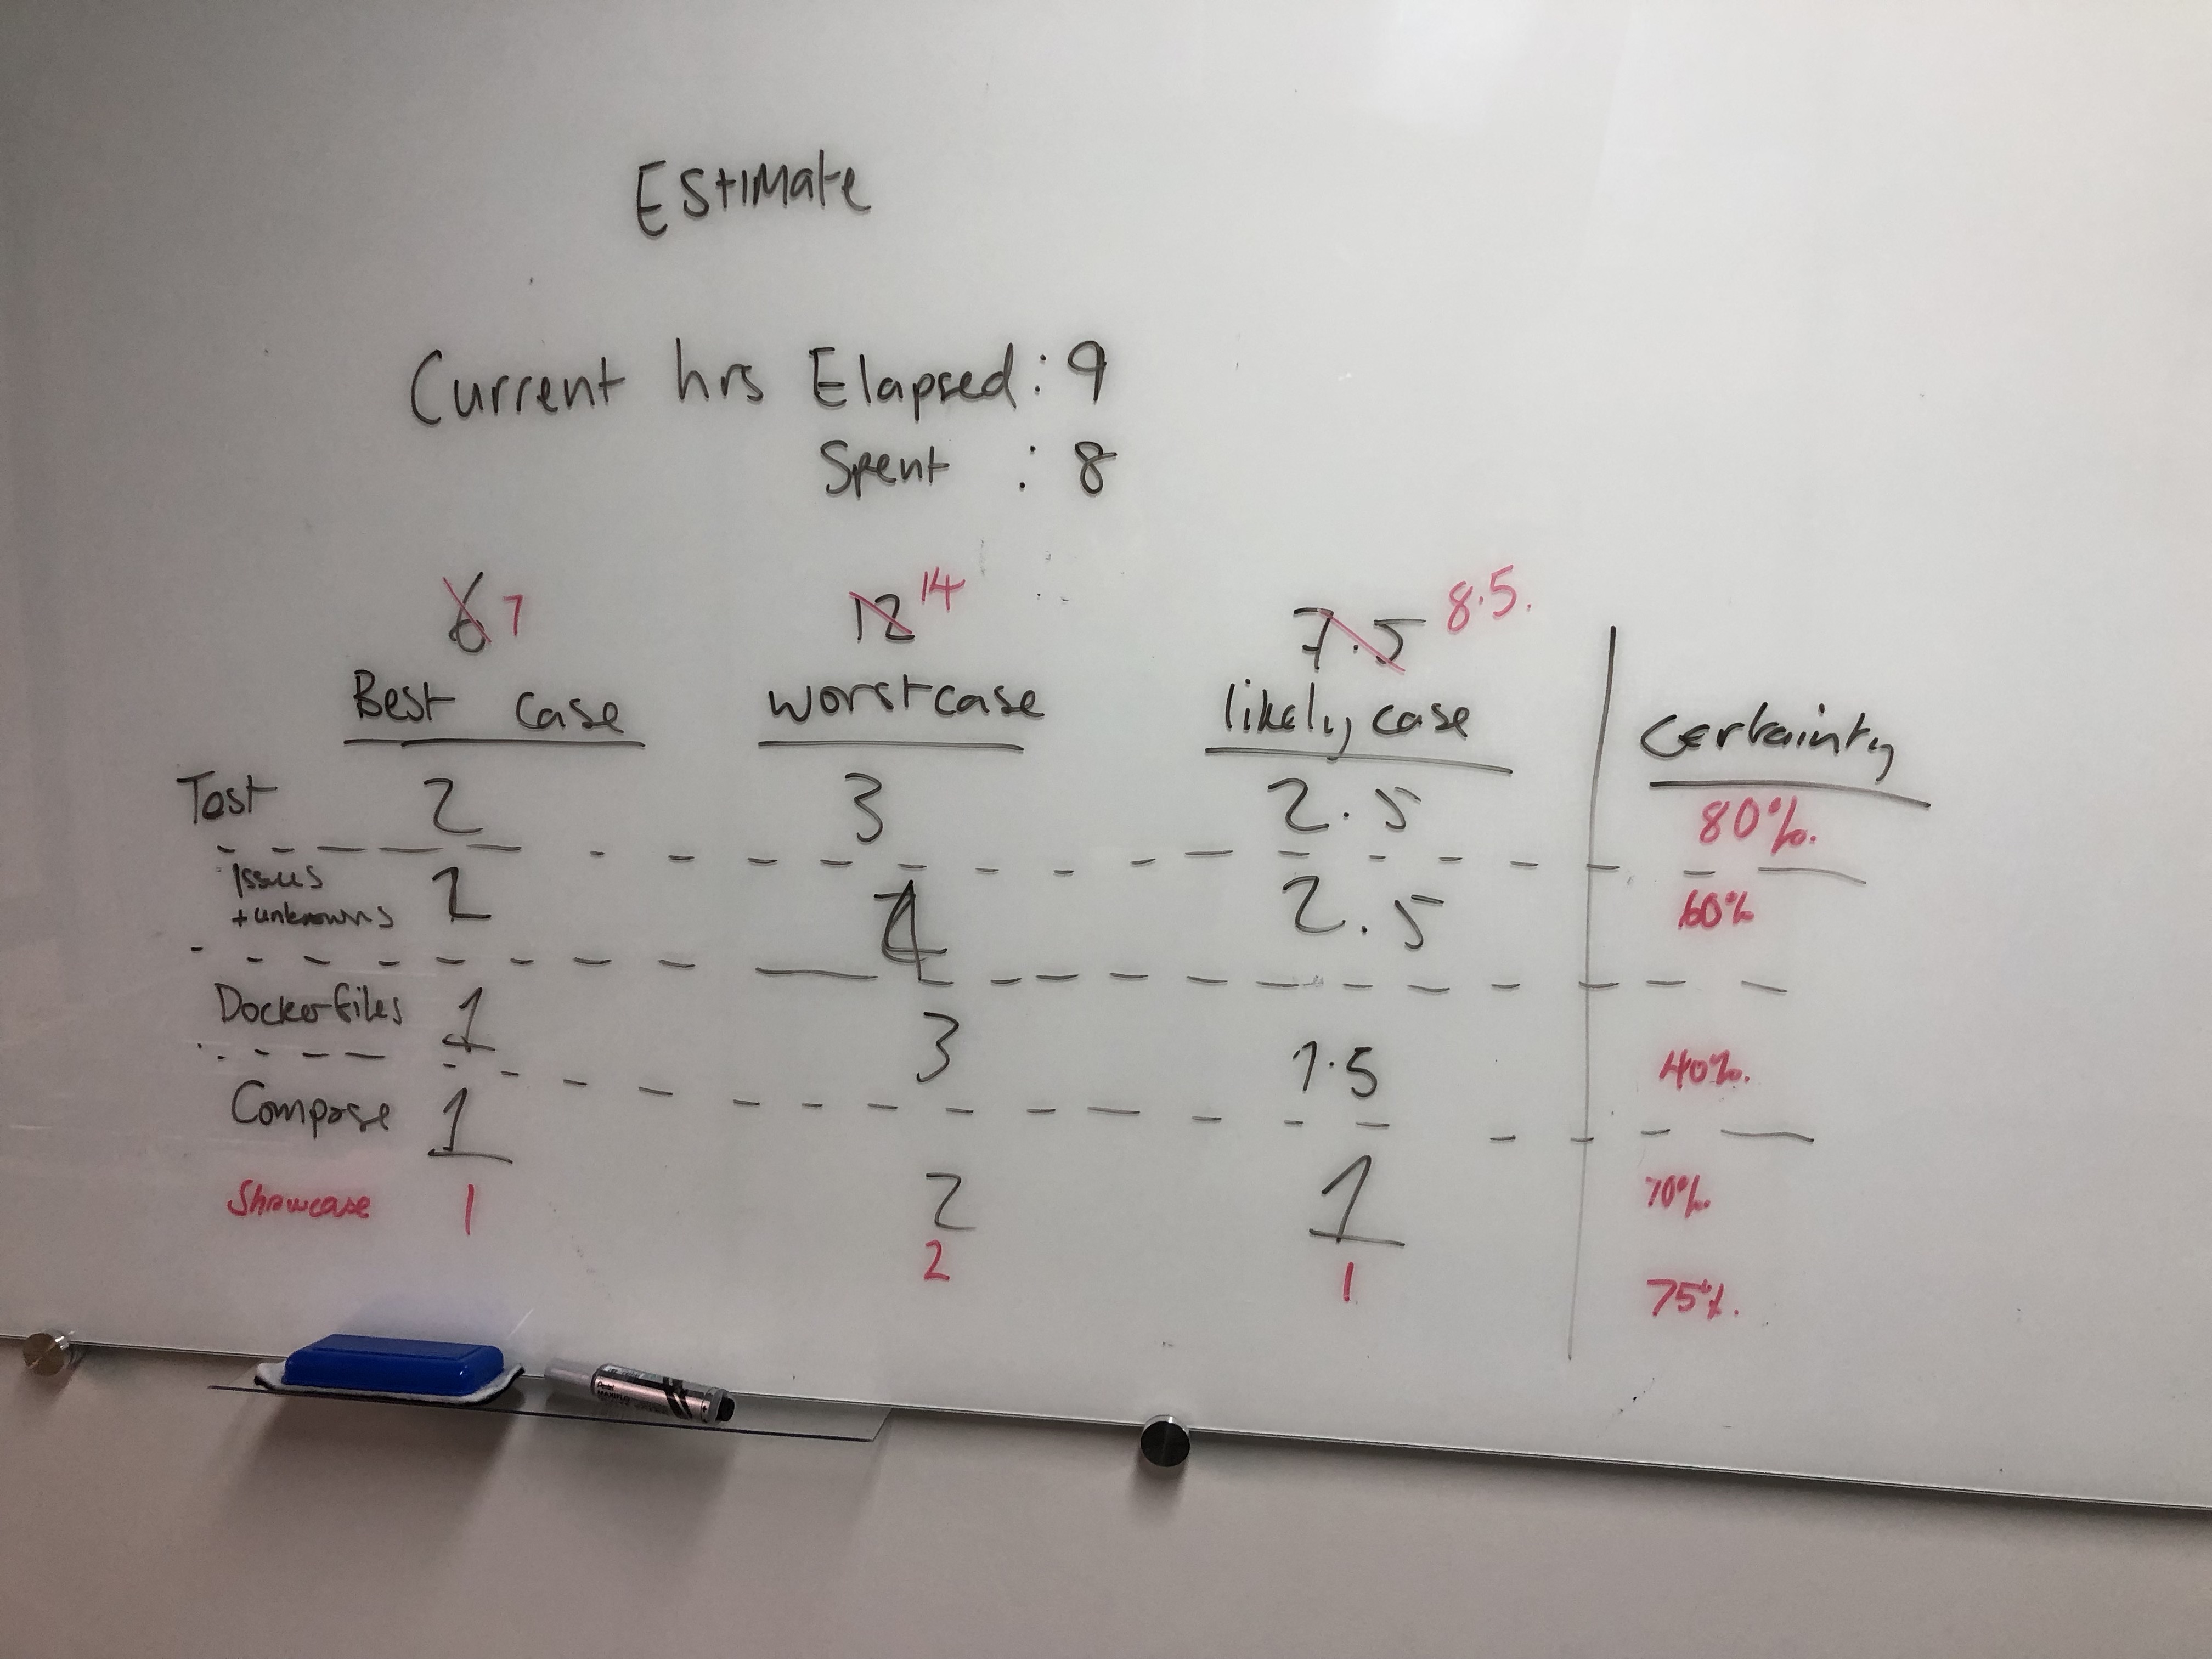 Estimate
Current hrs Elapsed: 9
Spent : 8
6 7 12 14 7.5 8.5.
Best case worstcase likely case certainty
Test 2 3 2.5 80%.
Issues
+unknowns 2 4 2.5 60%
Dockerfiles 1 3 1.5 40%.
Compose 1 2 1 70%.
Showcase 1 2 1 75%.
Pentel
MAXIFLO